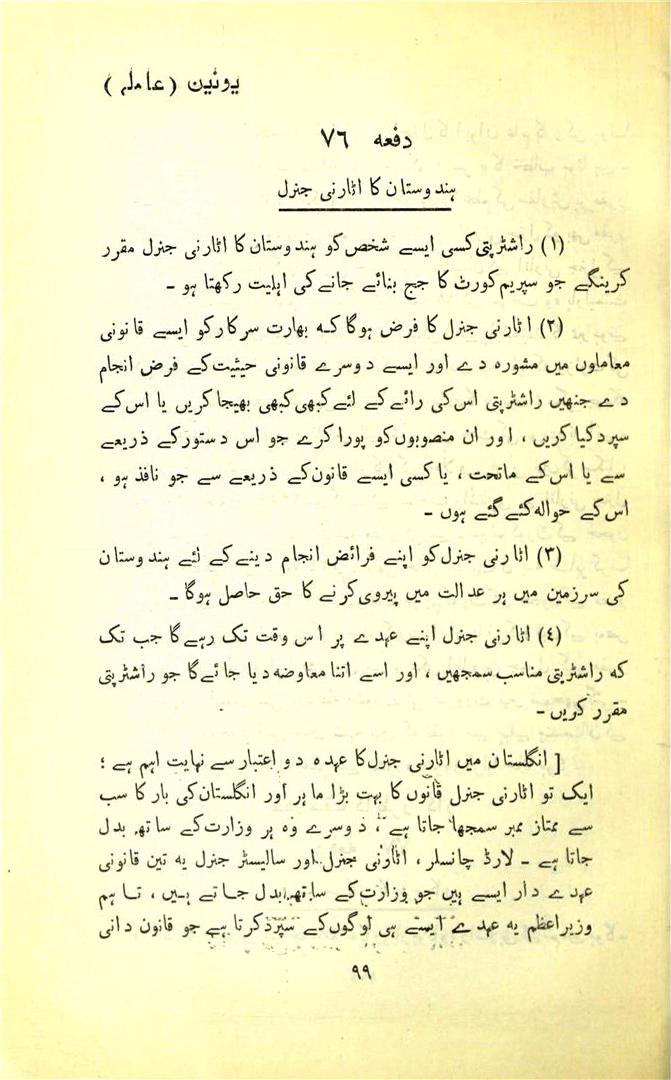 یونین (عاملہ)
دفعہ ۷٦
ہندوستان کا اٹارنی جنرل
(۱) راشٹرپتی کسی ایسے شخص کو ہندوستان کا اٹارنی جنرل مقرر
کرینگے جو سپریم کورٹ کا جج بنائے جانے کی اہلیت رکھتا ہو -
(۲) اٹارنی جنرل کا فرض ہوگا کہ بھارت سرکار کو ایسے قانونی
معاملوں میں مشورہ دے اور ایسے دوسرے قانونی حیثیت کے فرض انجام
دے جنھیں راشٹرپتی اس کی رائے کے لئے کبھی کبھی بھیجا کریں یا اس کے
سپرد کیا کریں ، اور ان منصوبوں کو پورا کرے جو اس دستور کے ذریعے
سے یا اس کے ماتحت ، یا کسی ایسے قانون کے ذریعے سے جو نافذ ہو ،
اس کے حوالہ کئے گئے ہوں -
(۳) اٹارنی جنرل کو اپنے فرائض انجام دینے کے لئے ہندوستان
کی سرزمین میں ہر عدالت میں پیروی کرنے کا حق حاصل ہوگا -
(٤) اٹارنی جنرل اپنے عہدے پر اس وقت تک رہے گا جب تک
کہ راشٹرپتی مناسب سمجھیں ، اور اسے اتنا معاوضہ دیا جائے گا جو راشٹرپتی
مقرر کریں -
[ انگلستان میں اٹارنی جنرل کا عہدہ دو اعتبار سے نہایت اہم ہے ؛
ایک تو اٹارنی جنرل قانوں کا بہت بڑا ماہر اور انگلستان کی بار کا سب
سے ممتاز ممبر سمجھا جاتا ہے ، دوسرے وہ ہر وزارت کے ساتھ بدل
جاتا ہے - لارڈ چانسلر ، اٹارنی جنرل اور سالیسٹر جنرل یہ تین قانونی
عہدے دار ایسے ہیں جو وزارت کے ساتھ بدل جاتے ہیں ، تاہم
وزیراعظم یہ عہدے ایسے ہی لوگوں کے سپرد کرتا ہے جو قانون دانی
۹۹